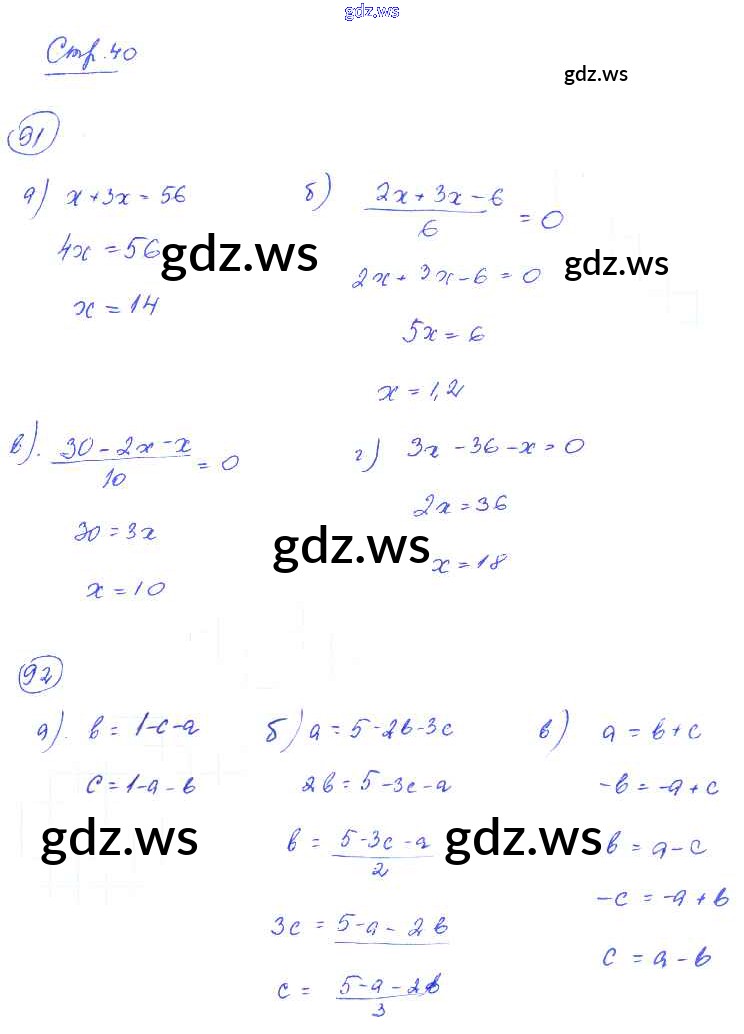 gdz.ws
Стр. 40
gdz.ws
91
а) x + 3x = 56
4x = 56
x = 14
б) (2x + 3x - 6)/6 = 0
2x + 3x - 6 = 0
5x = 6
x = 1,2
gdz.ws
gdz.ws
в). (30 - 2x - x)/10 = 0
30 = 3x
x = 10
г) 3x - 36 - x = 0
2x = 36
x = 18
gdz.ws
92
а). b = 1 - c - a
c = 1 - a - b
б) a = 5 - 2b - 3c
2b = 5 - 3c - a
b = (5 - 3c - a)/2
3c = 5 - a - 2b
c = (5 - a - 2b)/3
в) a = b + c
-b = -a + c
b = a - c
-c = -a + b
c = a - b
gdz.ws
gdz.ws